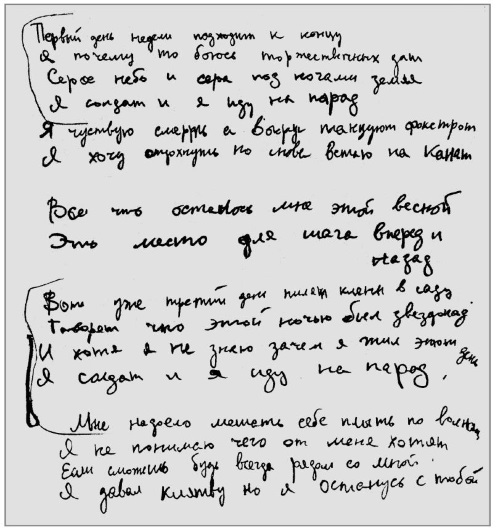 Первый день недели подходит к концу
Я почему то боюсь торжественных дат
Серое небо и сера под ногами земля
Я солдат и я иду на парад
Я чуствую смерть а вокруг танцуют фокстрот
Я хочу отдохнуть но снова встаю на канат
Все что осталось мне этой весной
Это место для шага вперед и
назад
Вот уже третий день пилят клены в саду
Говорят что этой ночью был звездопад
И хотя я не знаю зачем я жил этот день
Я солдат и я иду на парад,
Мне надоело мешать себе плыть по волнам
Я не понимаю чего от меня хотят
Если сможешь будь всегда рядом со мной
Я давал клятву но я останусь с тобой